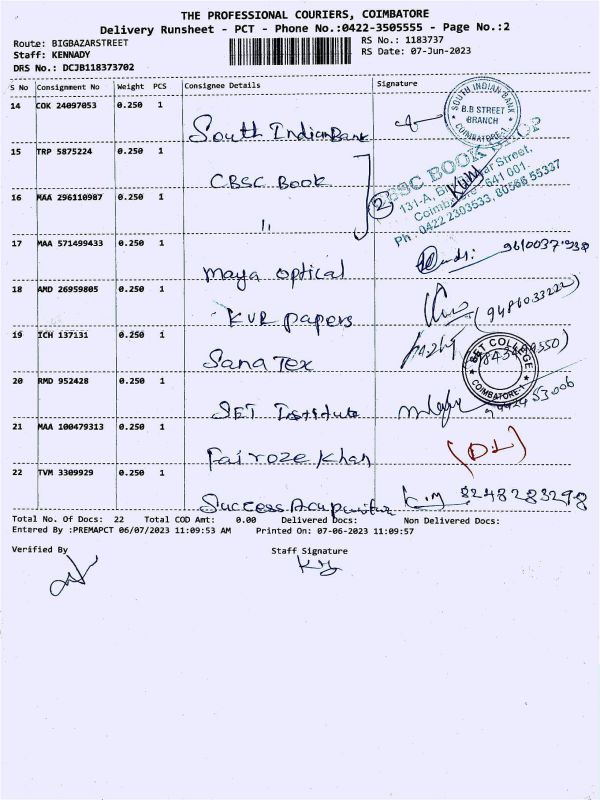 THE PROFESSIONAL COURIERS, COIMBATORE
Delivery Runsheet - PCT - Phone No.:0422-3505555 - Page No.:2
Route: BIGBAZARSTREET
Staff: KENNADY
DRS No.: DCJB118373702
RS No.: 1183737
RS Date: 07-Jun-2023
S No Consignment No Weight PCS Consignee Details Signature
14 COK 24097053 0.250 1 South Indian Bank
SOUTH INDIAN BANK
B.B STREET
BRANCH
COIMBATORE-1
15 TRP 5875224 0.250 1 CBSC Book
16 MAA 296110987 0.250 1 11 2
CBSC BOOK SHOP
131-A, Street,
Coimbatore - 641 001.
Ph : 0422 2303533, 80566 55337
17 MAA 571499433 0.250 1 Maya optical
18 AMD 26959805 0.250 1 KVR papers (9486033222)
19 ICH 137131 0.250 1 Sana Tex
COLLEGE
COIMBATORE-1
20 RMD 952428 0.250 1 SET Institute
21 MAA 100479313 0.250 1 Fairoze Khan (D.L)
22 TVM 3309929 0.250 1 Success Acupunctur 8248283298
Total No. Of Docs: 22 Total COD Amt: 0.00 Delivered Docs: Non Delivered Docs:
Entered By :PREMAPCT 06/07/2023 11:09:53 AM Printed On: 07-06-2023 11:09:57
Verified By Staff Signature